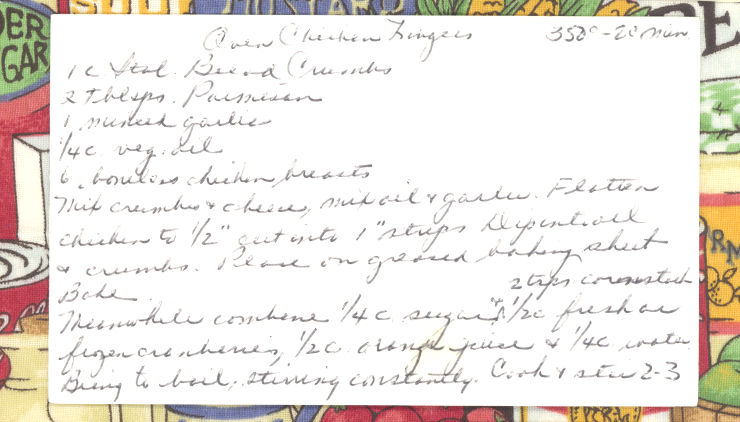 Oven Chicken Fingers 350° - 20 min
1 c Ital. Bread Crumbs
2 Tblsps. Parmesan
1 minced garlic
1/4 c. veg. oil
6 boneless chicken breasts
Mix crumbs & cheese, mix oil & garlic. Flatten
chicken to 1/2" cut into 1" strips Dip into oil
& crumbs. Place on greased baking sheet
Bake. 2 tsps cornstach
Meanwhile combine 1/4 c. sugar & 1/2 c fresh or
frozen cranberries, 1/2 c. orange juice & 1/4 c water.
Bring to boil, stirring constantly. Cook & stir 2-3
DER
GAR
E
RM